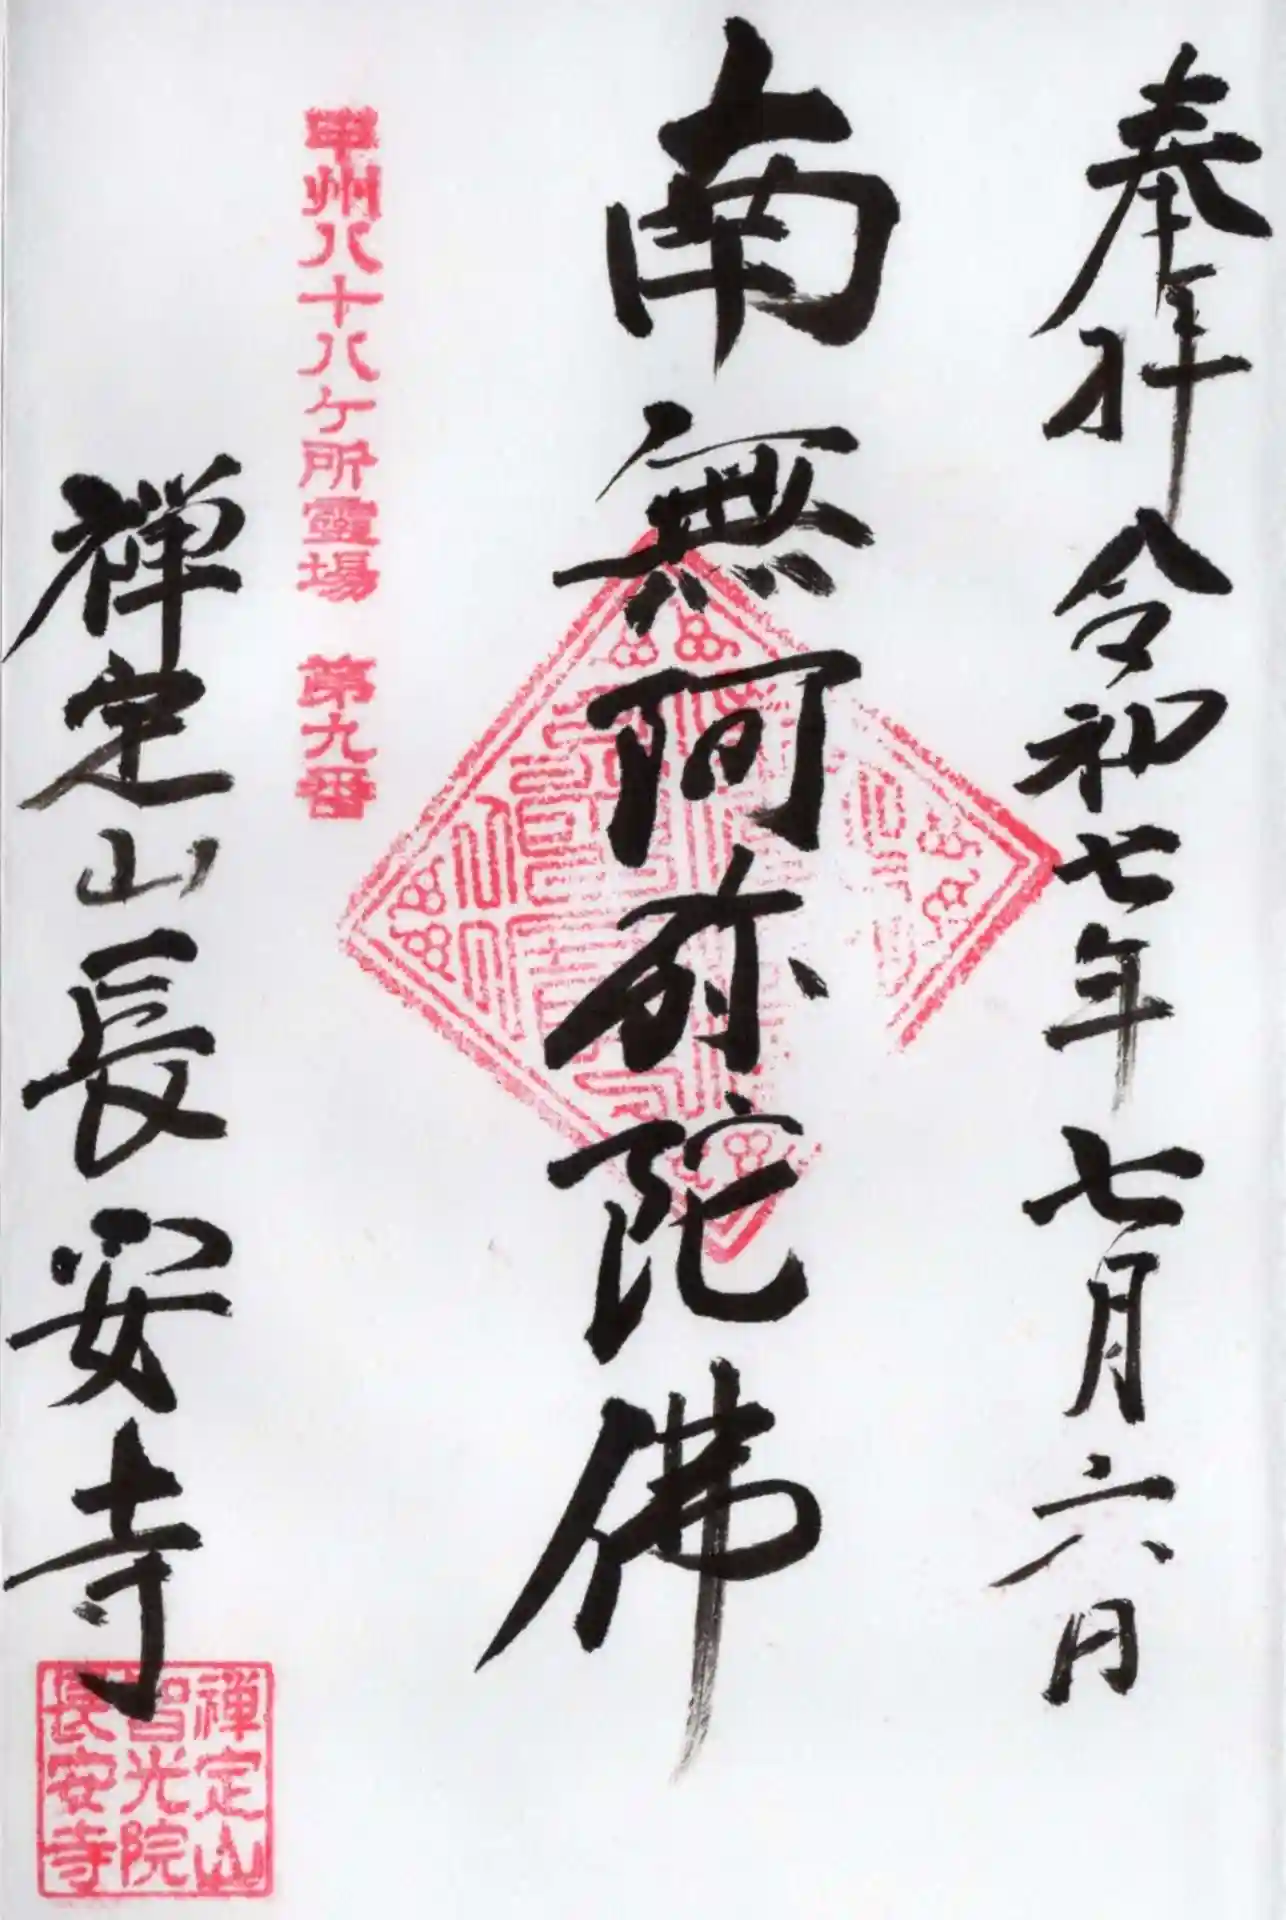 奉拝 令和七年七月六日
南無阿弥陀佛
甲州八十八ケ所霊場 第九番
禅定山長安寺
禅定山
智光院
長安寺